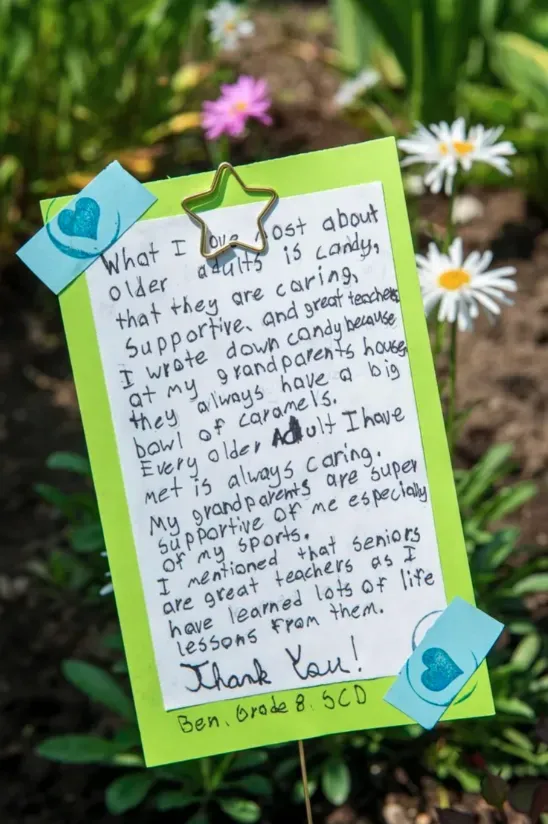 What I love most about
older adults is candy,
that they are caring,
supportive, and great teachers
I wrote down candy because
at my grandparents house,
they always have a big
bowl of caramels.
Every older Adult I have
met is always caring.
My grandparents are super
supportive of me especially
of my sports.
I mentioned that seniors
are great teachers as I
have learned lots of life
lessons from them.
Thank You!
Ben. Grade 8. SCD